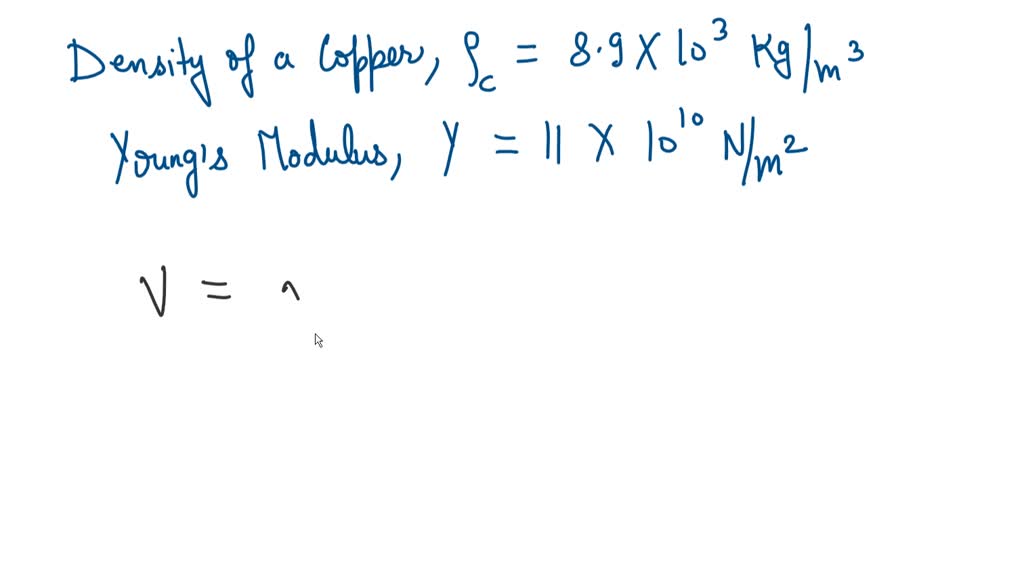 Density of a Copper, ρc = 8.9 X 10³ Kg/m³
Young's Modulus, Y = 11 X 10¹⁰ N/m²
V =